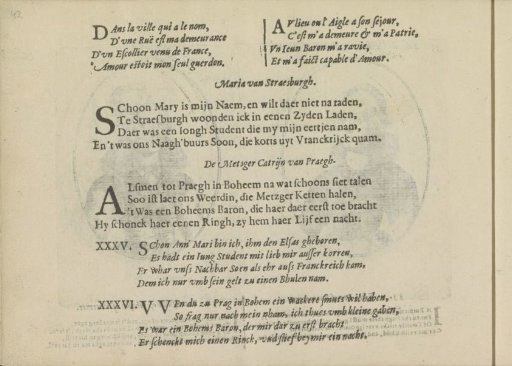 Dans la ville qui a le nom,
D'vne Ruë est ma demeurance
D'vn Escollier venu de France,
Amour estoit mon seul guerdon.
Av lieu ou l'Aigle a son séjour,
C'est m'a demeure & m'a Patrie,
Vn Ieun Baron m'a ravie,
Et m'a faict capable d'Amour.
Maria van Straesburgh.
Schoon Mary is mijn Naem, en wilt daer niet na raden,
Te Straesburgh woonden ick in eenen Zyden Laden,
Daer was een Iongh Student die my mijn eertjen nam,
En 't was ons Naagh'buurs Soon, die korts uyt Vranckrijck quam.
De Metsger Catrijn van Praegh.
Alsmen tot Praegh in Boheem na wat schoons siet talen
Soo ist laet ons Weerdin, die Metzger Ketten halen,
't Was een Boheems Baron, die haer daer eerst toe bracht
Hy schonck haer eenen Ringh, zy hem haer Lijf een nacht.
XXXV. Schon Ann' Mari bin ich, ihm den Elsas gheboren,
Es hadt ein Iung Student mit lieb mir ausser korren,
Er whar unss Nachbar Soen als ehr auss Franckreich kam,
Dem ich nur umb sein gelt zu einen Bhulen nam.
XXXVI. VVEn du zu Prag in Bohem ein wackere smuts wil haben,
So frag nur nach mein nham, ich thues umb kleine gaben,
Es war ein Bohems Baron, der mir dar zu erst bracht
Er schenckt mich einen Rinck, und slief bey mir ein nacht.